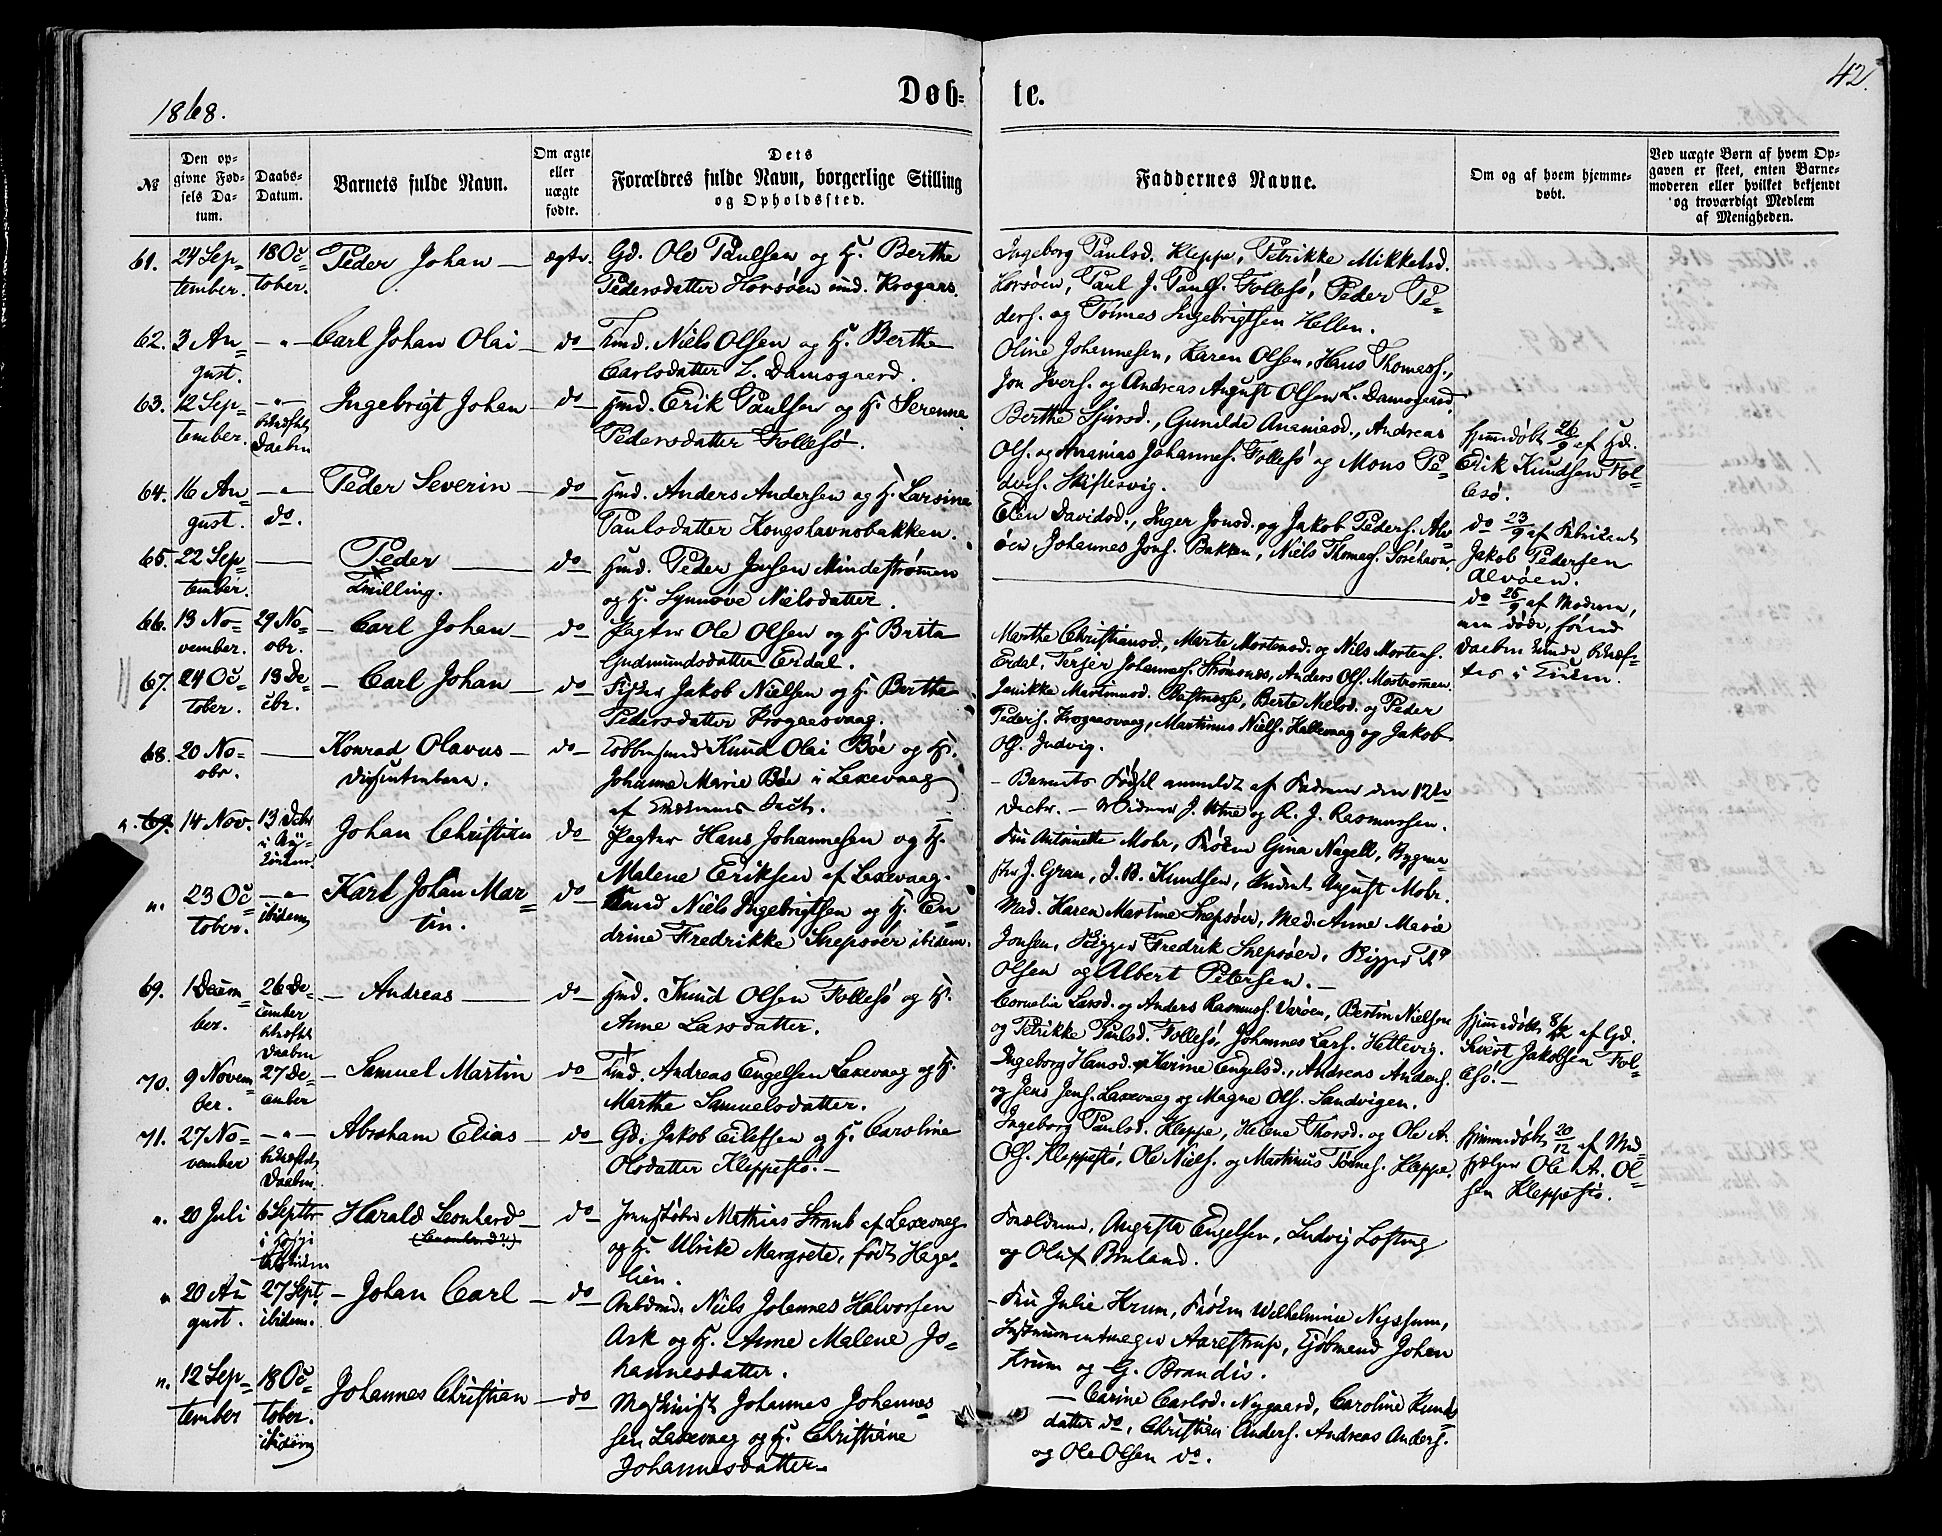 1868.
Døb-
te.
42.
№
Den op-
givne Fød-
sels Da-
tum.
Daabs-
Datum.
Barnets fulde Navn.
Om ægte
eller
uægte
fødte.
Dets
Forældres fulde Navn, borgerlige Stilling
og Opholdssted.
Faddernes Navne.
Om og af hvem hjemme-
døbt.
Ved uægte Børn af hvem Op-
gaven er skeet, enten Barne-
moderen eller hvilket bekjendt
og troværdigt Medlem
af Menigheden.
61.
24 Sep-
tember.
18 Oc-
tober.
Peder Johan
ægte.
Gd. Ole Paulsen og H. Berthe
Pedersdatter Horsøen
Ingeborg Paulsd. Kleppe, Petrikke Mikkelsd.
Horsøen, Paul J. Pauls. Follesø, Peder Pe-
ders. og Tørres Ingebrigtsen Hellen.
62.
3 Au-
gust.
- " -
Carl Johan Olai
do
Niels Olsen og H. Berthe
Carlsdatter L. Damsgaard.
Oline Johannesen, Karen Olsen, Hans Thomess.,
Jon Ivers. og Andreas August Olsen L. Damsgaard.
63.
12 Sep-
tember.
- " -
bekræftet
Daaben
Ingebrigt Johan
do
Hmd. Erik Paulsen og H. Serenna
Pedersdatter Follesø.
Berthe Sjursd., Gunilde Ananiasd., Andreas
Ols. og Ananias Johannes. Follesø og Mons Pe-
ders. Skiftesvig.
Hjemmedøbt 26/9 af Hd.
Erik Knudsen Fol-
lesø.
64.
16 Au-
gust.
- " -
do.
Peder Severin
do
Hmd. Anders Andersen og H. Larsine
Paulsdatter Kongshavnsbakken.
Elen Davidsd., Inger Jonsd. og Jakob Peders. Alv-
øen, Johannes Jons. Bakken, Niels Thomess.
do 23/9 af Fabrikant
Jakob Pedersen
Alvøen.
65.
22 Sep-
tember.
Peder
Tvilling.
do
Hmd. Peder Jensen Mindestrømmen
og H. Synnøve Nielsdatter.
do 25/9 af Moderen,
men døde, førend
Daaben kunde bekræf-
tes i Kirken.
66.
13 No-
vember.
29 No-
vbr.
Carl Johan
do
Pagter Ole Olsen og H. Brita
Gudmundsdatter Erdal.
Marthe Christiansd., Marte Mortensd. og Nils Mortens.
Erdal, Terjer Johannes. Strømsnes, Anders Ols. Mostrømmen.
67.
24 Oc-
tober.
13 De-
cbr.
Carl Johan
do
Fisker Jakob Nielsen og H. Berthe
Pedersdatter Krogaasvaag.
Janikke Martinusd. Berte Nielsd. og Peder
Peders. Krogaasvaag, Martinus Niels. og Jakob
Ols. Indvig.
68.
20 No-
vbr.
Konrad Olavus
Dissenterbarn.
do
Knud Olai Bøe og H.
Johanne Marie Bøe i Laxevaag
af Sect.
- Barnets Fødsel anmeldt af Faderen den 12te
Decbr. - Vidner J. Utne og R. J. Rasmussen.
n. 69.
14 Nov.
13 Decbr
i Ny-
kirken
Johan Christian
do
Pagter Hans Johannesen og H.
Malene Eriksen af Laxevaag.
Fru Antoinette Mohr, Frøken Gina Nagell, Bygme-
ster J. Gran, J. B. Knudsen, Student August Mohr.
n.
23 Oc-
tober.
- " -
ibidem
Karl Johan Mar-
tin.
do
Niels Ingebrigtsen og H. En-
drine Fredrikke Snepsøer ibidem.
Mad. Karen Martine Snepsøer, Mad. Anne Marie
Jonsen, Rigger Fredrik Snepsøer, Rigger
Olsen og Albert Petersen.
69.
1 Decem-
ber.
26 De-
cember
bekræftet
Daaben
Andreas
do
Hmd. Knud Olsen Follesø og H.
Anne Larsdatter.
Cornelia Larsd. og Anders Rasmuss. Varøen, Bertin Nielsen
og Petrikke Paulsd. Follesø, Johannes Lars. Hettevig.
Hjemmedøbt 8/12 af Gd.
Sivert Jakobsen Fol-
lesø.
70.
9 Novem-
ber.
27 De-
cember
Samuel Martin
do
Andreas Engelsen Laxevaag og H.
Marthe Samuelsdatter.
Ingeborg Hansd. Karine Engelsd., Andreas Anders.
og Jens Jens. Laxevaag og Magne Ols. Sandvigen.
71.
27 No-
vember
- " -
bekræftet
Daaben.
Abraham Elias
do
Gd. Jakob Eilefsen og H. Caroline
Olsdatter Kleppestø.
Ingeborg Paulsd. Kleppe, Helene Thorsd. og Ole A.
Ols. Kleppestø, Ole Niels. og Martinus Tørres. Kleppe.
Hjemmedøbt 20/12 af Med-
hjælper Ole A. Ol-
sen Kleppestø.
n.
20 Juli
6 Septbr
Harald Leonhard
do
Mathias Straub af Laxevaag
og H. Ulrike Margrete, født Hage-
lien.
Forældrene, Augusta Engelsen, Ludvig Lofting
og Oluf Bruland.
n
20 Au
gust.
27 Sept.
ibidem.
Johan Carl
do
Arbmd. Niels Johannes Halvorsen
Ask og H. Anne Malene Jo-
hannesdatter.
- Fru Julie Krum, Frøken Welhelmine Nyssum,
Instrumentmager Aarestrup, Kjøbmand Johan
Krum og G. Brandis.
n.
12 Sep-
tember
18 Oc-
tober.
ibidem
Johannes Christian
do
Maskinist Johannes Johannes-
sen Laxevaag og H. Christiane
Johannesdatter.
- Carine Carlsd. Nygaard, Caroline Knuds
datter do, Christian Anders. Andreas Anders.
og Ole Olsen do.